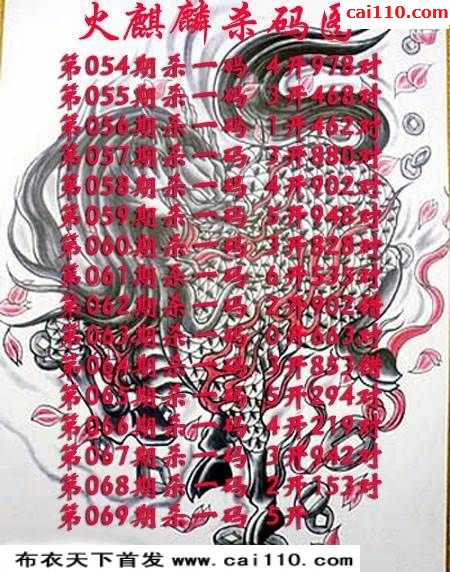 cai110.com
火麒麟杀码图
第054期杀一码 4开978对
第055期杀一码 3开468对
第056期杀一码 1开462对
第057期杀一码 3开880对
第058期杀一码 4开902对
第059期杀一码 5开948对
第060期杀一码 3开828对
第061期杀一码 6开535对
第062期杀一码 2开902错
第063期杀一码 0开663对
第064期杀一码 3开853错
第065期杀一码 5开294对
第066期杀一码 4开219对
第067期杀一码 3开942对
第068期杀一码 2开153对
第069期杀一码 5开
布衣天下首发 www.cai110.com